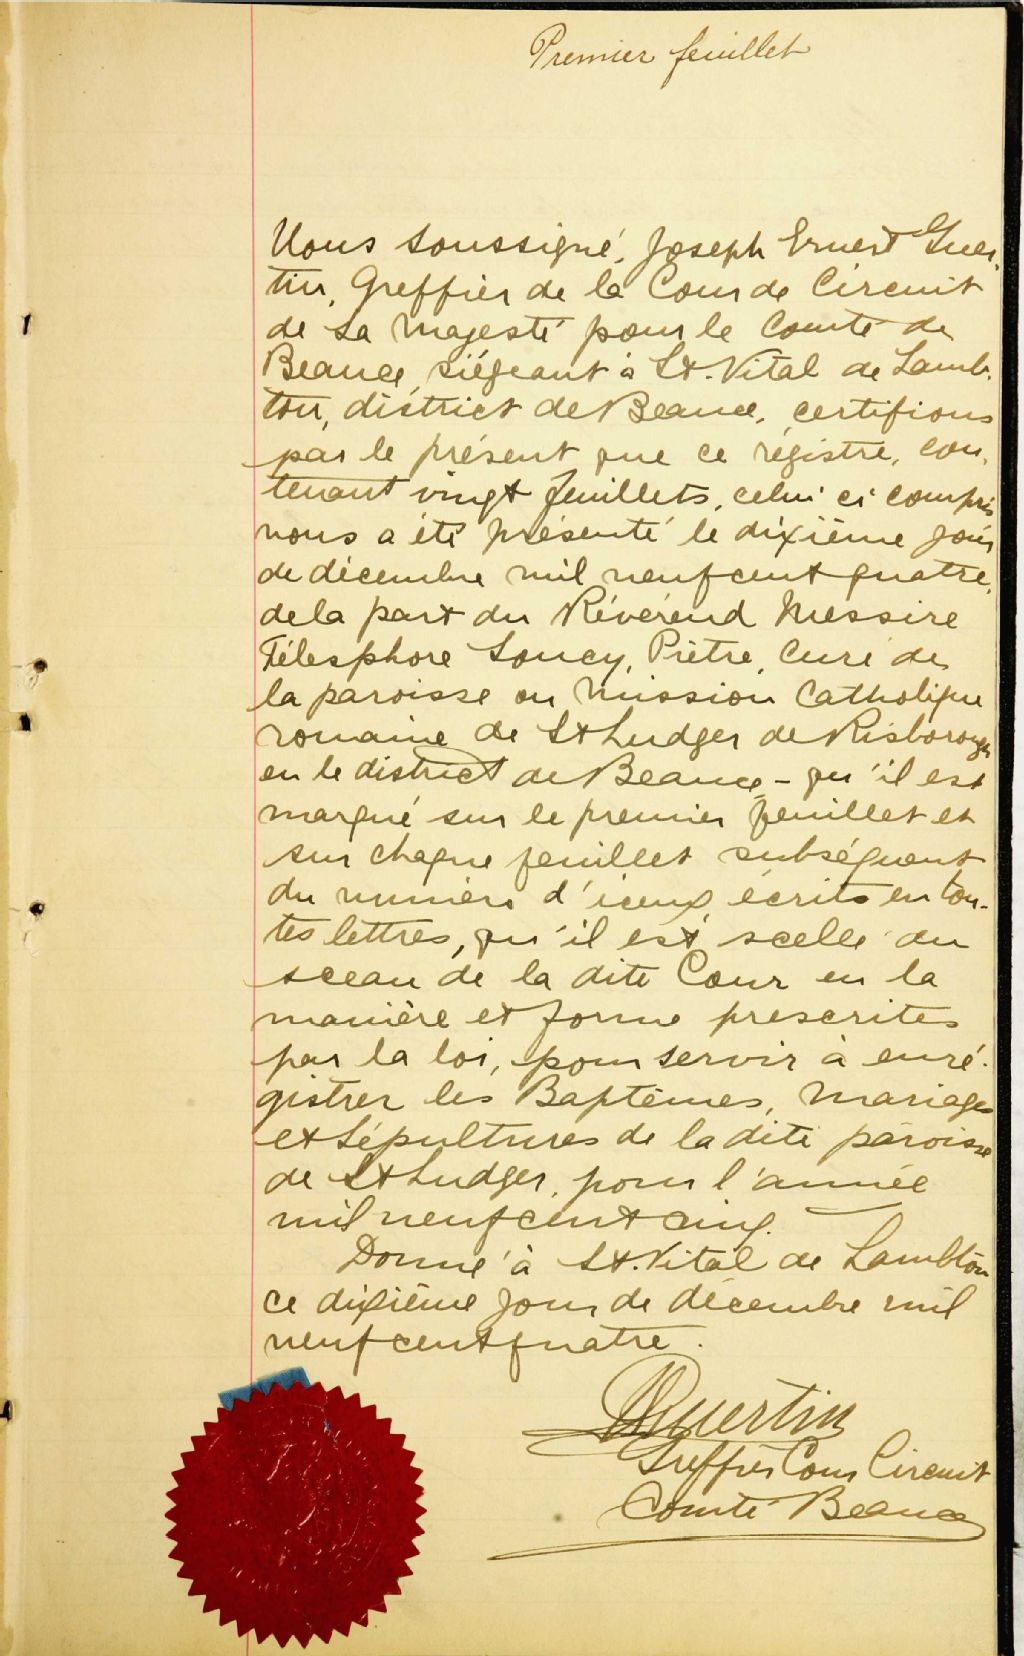 Premier feuillet
Nous soussigné, Joseph Ernest Guer-
tin, Greffier de la Cour de Circuit
de Sa Majesté pour le Comté de
Beauce, siégeant à St. Vital de Lamb-
ton, district de Beauce, certifions
par le présent que ce régistre, con-
tenant vingt feuillets, celui ci compris
nous a été présenté le dixième jour
de décembre mil neuf cent quatre,
de la part du Révérend Messire
Télesphore Soucy, Prêtre, Curé de
la paroisse ou Mission Catholique
romaine de St Ludger de Risborough
en le district de Beauce - qu'il est
marqué sur le premier feuillet et
sur chaque feuillet subséquent
du numéro d'iceux écrits en tou-
tes lettres, qu'il est scellé du
sceau de la dite Cour en la
manière et forme prescrites
par la loi, pour servir à enré-
gistrer les Baptêmes, Mariages
et Sépultures de la dite paroisse
de St Ludger, pour l'année
mil neuf cent cinq.
Donné à St. Vital de Lambton
ce dixième jour de décembre mil
neuf cent quatre.
Guertin
Greffier Cour Circuit
Comté Beauce